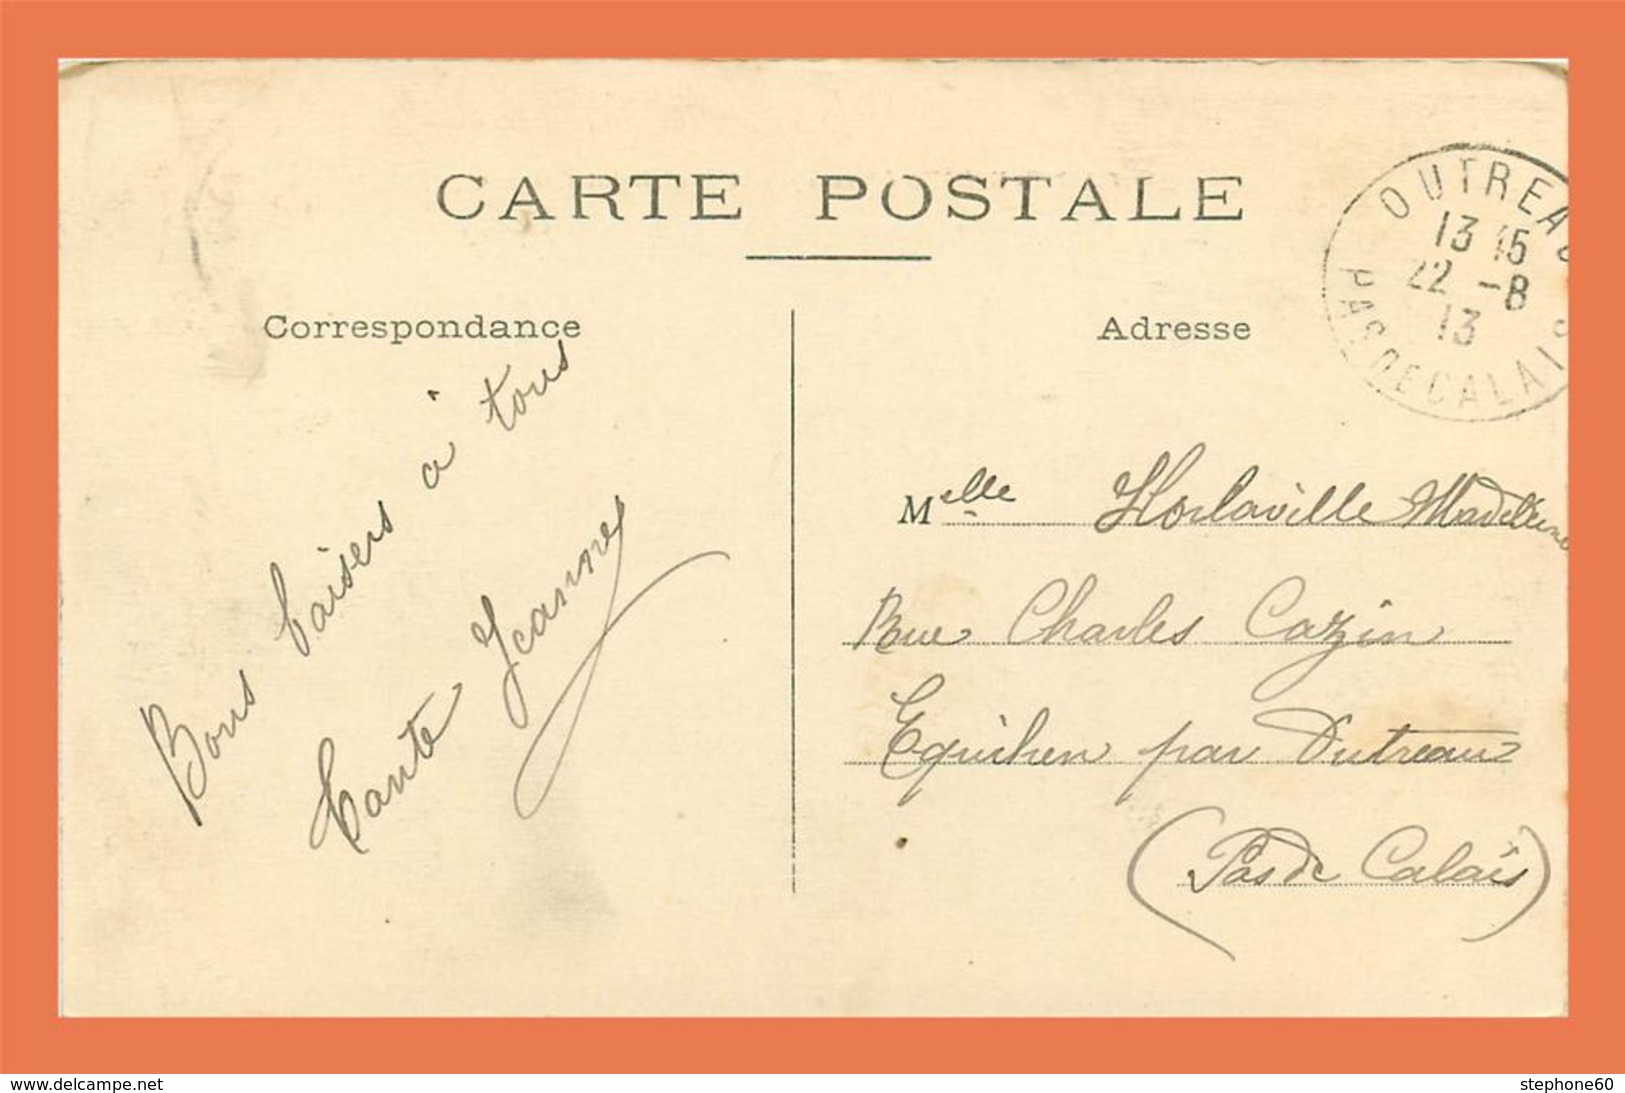 CARTE POSTALE
OUTREAU
13 15
22 -8
13
PAS DE CALAIS
Correspondance
Adresse
Bons baisers à tous
Tante Jeanne
Melle Horlaville Madeleine
Rue Charles Cazin
Equihen par Outreau
(Pas de Calais)
www.delcampe.net
stephone60